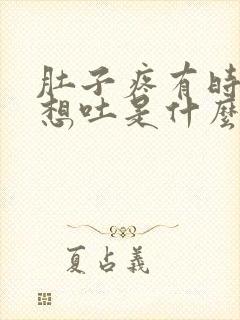 肚子疼有時
想吐是什麼
夏占義